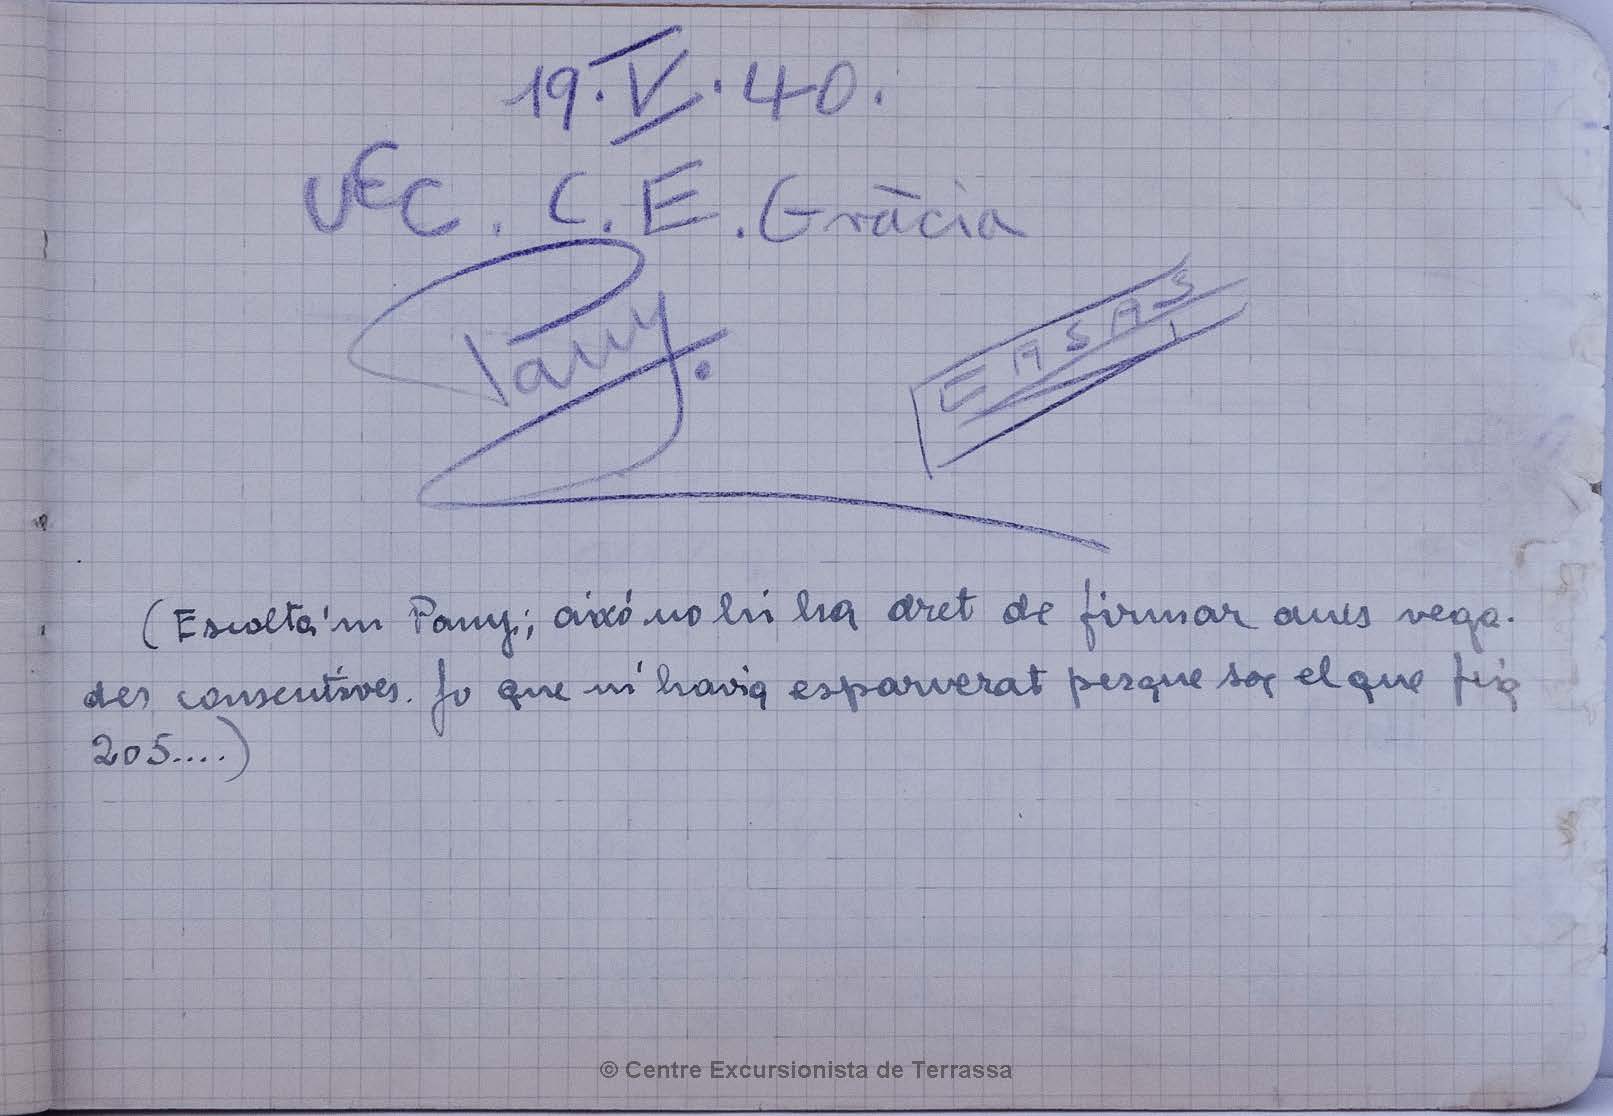 19.V.40.
UEC. C.E. Gràcia
Pany.
EASAS
(Escolta'm Pany; aixó no hi ha dret de firmar dues vega-
des consecutives. Jo que m'havia esparverat perque soc el que feia
205....)
© Centre Excursionista de Terrassa